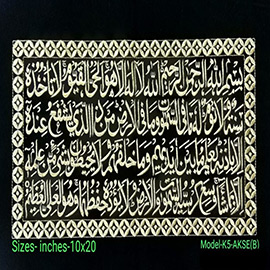 بسم الله الرحمن الرحيم الله لا اله الا هو الحي القيوم لا تاخذه
سنة ولا نوم له ما في السموات وما في الارض من ذا الذي يشفع عنده
الا باذنه يعلم ما بين ايديهم وما خلفهم ولا يحيطون بشيء من علمه
الا بما شاء وسع كرسيه السموات والارض ولا يؤده حفظهما وهو العلي العظيم
Sizes- inches-10x20
Model-K5-AKSE(B)